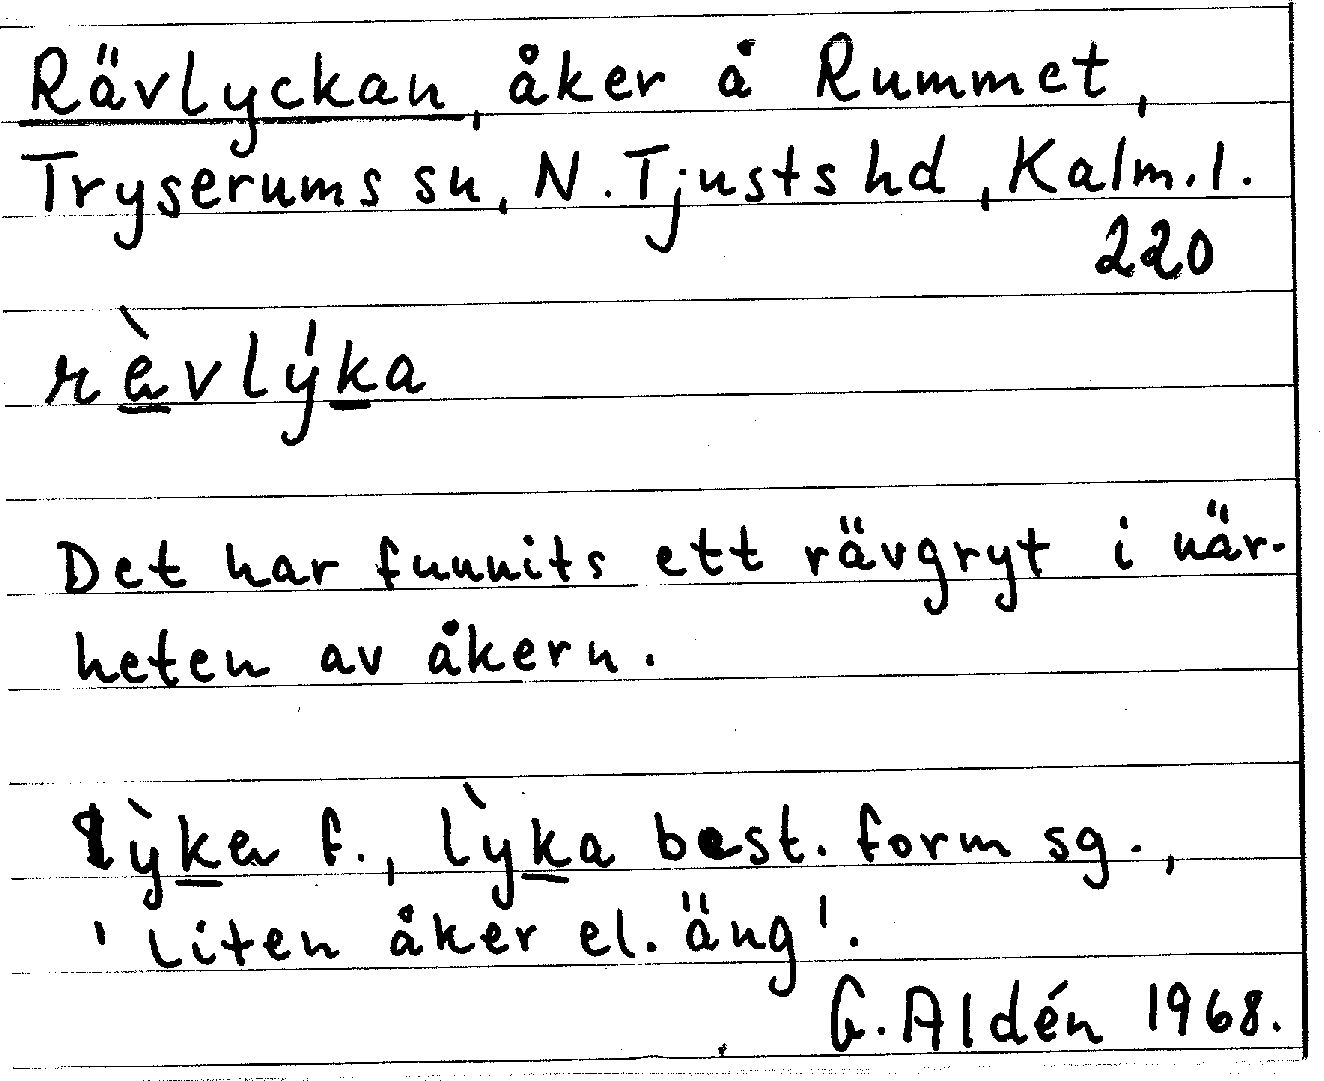 Rävlyckan, åker å Rummet,
Tryserums sn, N. Tjusts hd, Kalm.l.
220
rὰvlýka
Det har funnits ett rävgryt i när-
heten av åkern.
lỳka f., lỳka best. form sg.,
'liten åker el. äng'.
G. Aldén 1968.